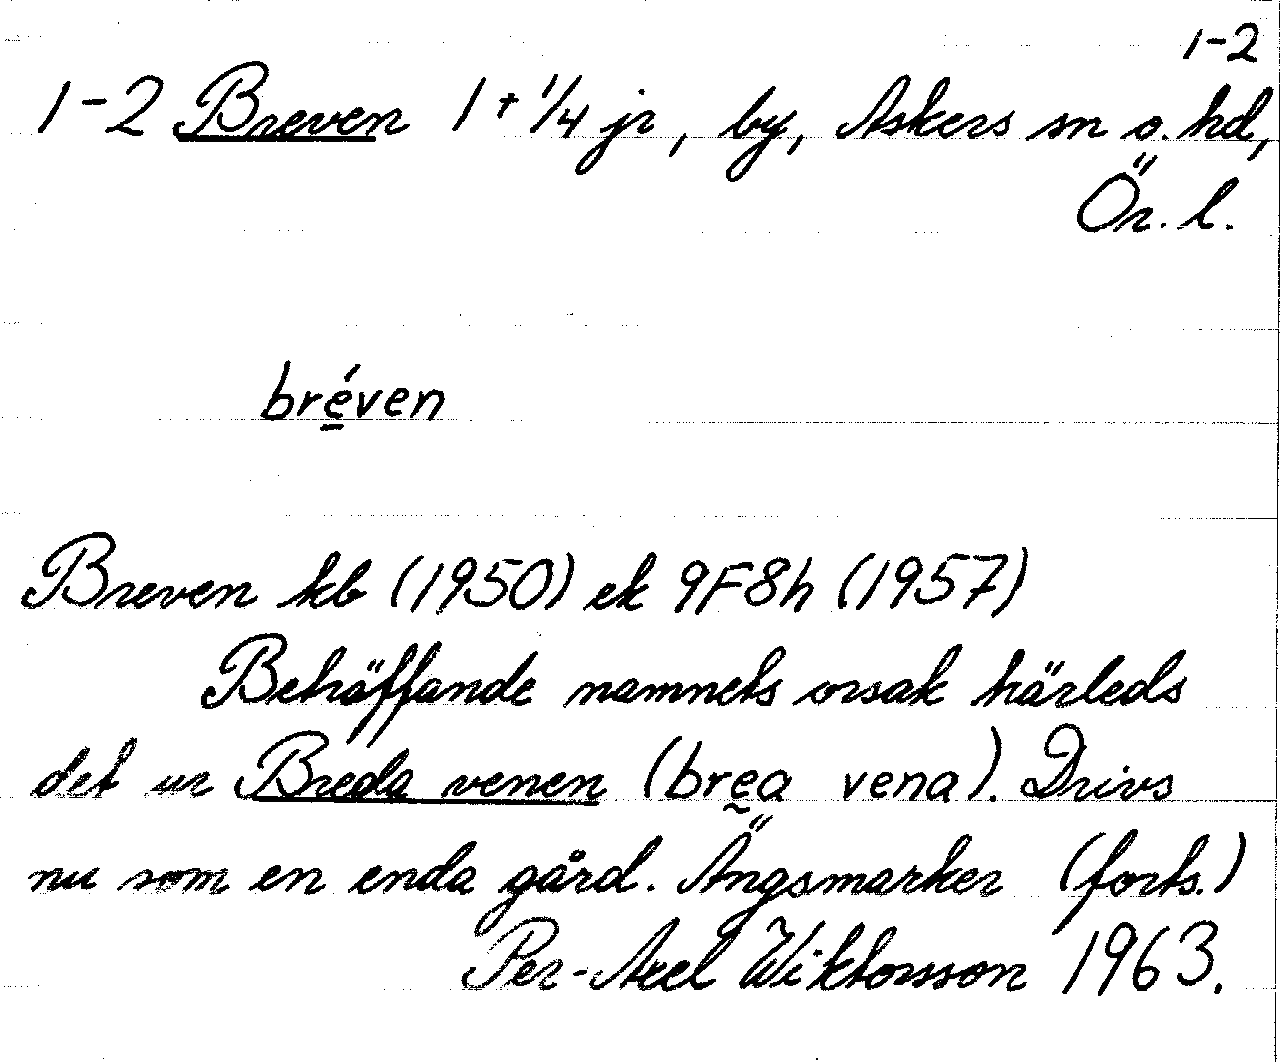 1-2
1-2 Breven 1 + 1/4 jr, by, Askers sn o. hd,
Ör. l.
bréven
Breven kb (1950) ek 9F8h (1957)
Beträffande namnets orsak härleds
det ur Breda venen (brea vena). Drivs
nu som en enda gård. Ängsmarker (forts.)
Per-Axel Wiktorsson 1963.